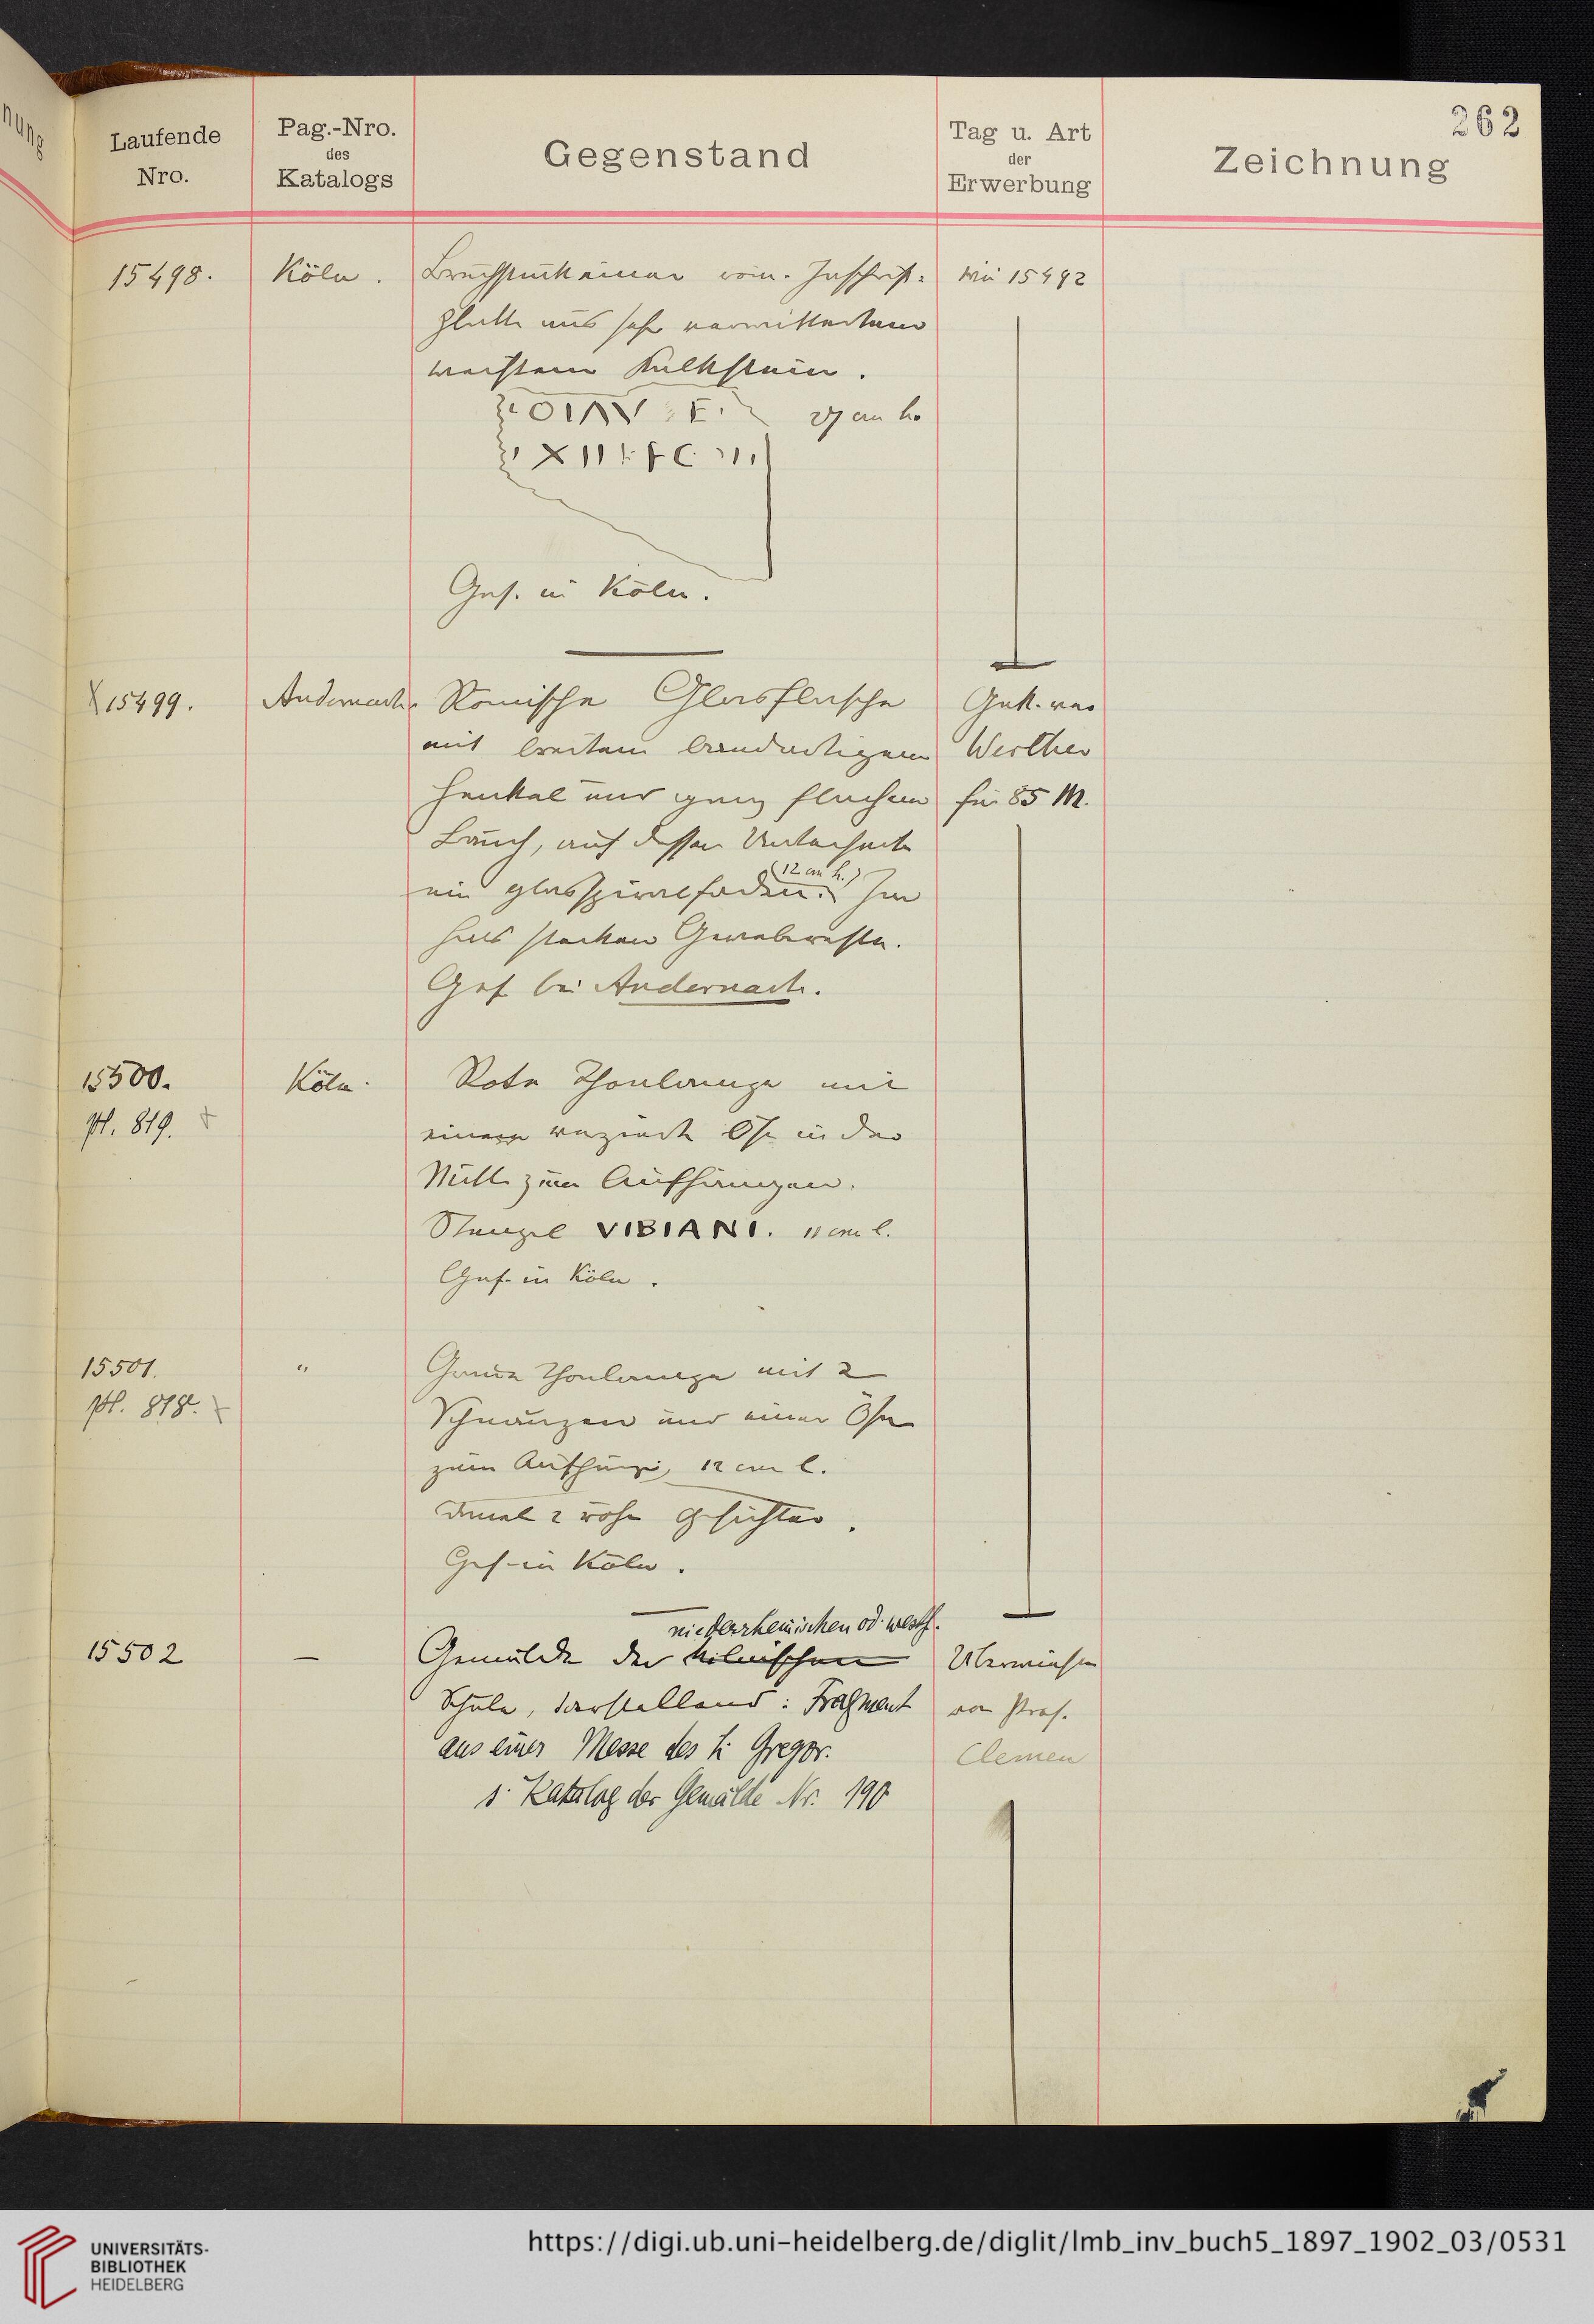 262
Laufende
Nro.
Pag.-Nro.
des
Katalogs
Gegenstand
Tag u. Art
der
Erwerbung
Zeichnung
nung
15498.
Köln.
Bruchstück einer röm. Inschrift-
platte aus sehr verwittertem
weißem Kalkstein.
27 cm h.
Gef. in Köln.
Wie 15492
15499.
Andernach.
Römische Glasflasche
mit breitem bandartigem
Henkel und ganz flachem
Bauch, auf dessen Unterseite
(12 cm h.)
ein Glasspiralfaden. Im
Hals stecken Gewebereste.
Gef. bei Andernach.
Gek. von
Werther
für 85 M.
15500.
pl. 819.
Köln.
Rote Thonlampe mit
einer verzierte Öse in der
Mitte zum Aufhängen.
Stempel VIBIANI. 11 cm l.
Gef. in Köln.
15501.
pl. 818.
"
Graue Thonlampe mit 2
Schnauzen und einer Öse
zum Aufhängen, 12 cm l.
2 rohe Gesichter.
Gef. in Köln.
15502
—
niederrheinischen od. westf.
Gemälde der kölnischen
Schule, darstellend: Fragment
aus einer Messe des h. Gregor.
s. Katalog der Gemälde Nr. 190
Überwiesen
von Prof.
Clemen
UNIVERSITÄTS-
BIBLIOTHEK
HEIDELBERG
https://digi.ub.uni-heidelberg.de/diglit/lmb_inv_buch5_1897_1902_03/0531